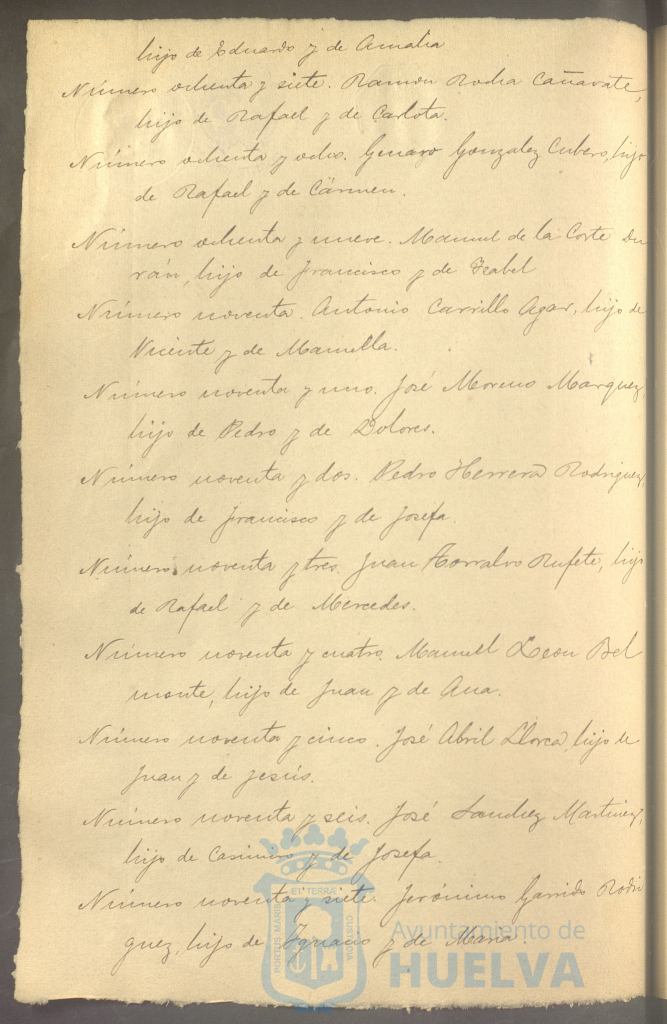 hijo de Eduardo y de Amalia
Número ochenta y siete. Ramon Rodia Cañavate,
hijo de Rafael y de Carlota.
Número ochenta y ocho. Genaro Gonzalez Cubero, hijo
de Rafael y de Cármen.
Número ochenta y nueve. Manuel de la Corte Du
rán, hijo de Francisco y de Isabel
Número noventa. Antonio Carrillo Agar, hijo de
Vicente y de Manuella.
Número noventa y uno. José Moreno Marquez,
hijo de Pedro y de Dolores.
Número noventa y dos. Pedro Herrera Rodriguez,
hijo de Francisco y de Josefa.
Número noventa y tres. Juan Torralvo Rufete, hijo
de Rafael y de Mercedes.
Número noventa y cuatro. Manuel Leon Bel
monte, hijo de Juan y de Ana.
Número noventa y cinco. José Abril Llorca, hijo de
Juan y de Jesús.
Número noventa y seis. José Sanchez Martinez,
hijo de Casimiro y de Josefa.
Número noventa y siete. Jerónimo Garrido Rodri
guez, hijo de Ignacio y de Maria.
PORTUS MARIS ET TERRÆ CUSTODIA
Ayuntamiento de
HUELVA